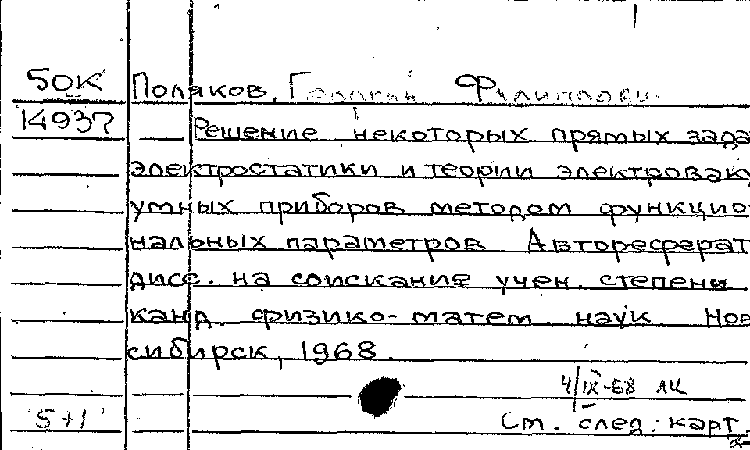 50К Поляков, Филиппович
14937 — Решение некоторых прямых зада
электростатики и теории электроваку
умных приборов методом функцио
нальных параметров Автореферат
дисс. на соискание учен. степени
канд физико-матем наук Нов
сибирск, 1968.
4/IX-68
5+1 См. след. карт.